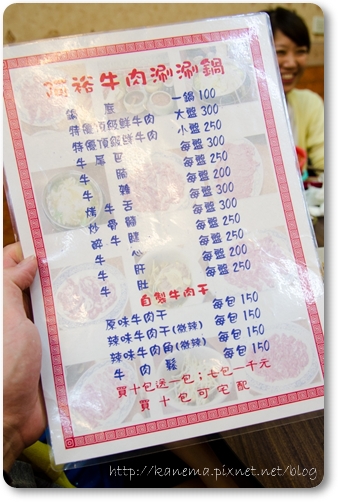 阿裕牛肉涮涮鍋
鍋底 一鍋 100
特優頂級鮮牛肉 大盤 300
特優頂級鮮牛肉 小盤 250
牛 每盤 250
牛 每盤 300
牛雜 每盤 200
牛舌 每盤 300
牛骨髓 每盤 250
牛 每盤 250
牛心 每盤 250
牛肝 每盤 200
牛肚 每盤 250
自製牛肉干
原味牛肉干 每包 150
辣味牛肉干(微辣) 每包 150
辣味牛肉角(微辣) 每包 150
牛肉鬆 每包 150
買十包送一包；七包一千元
買十包可宅配
http://kanema.pixnet.net/blog